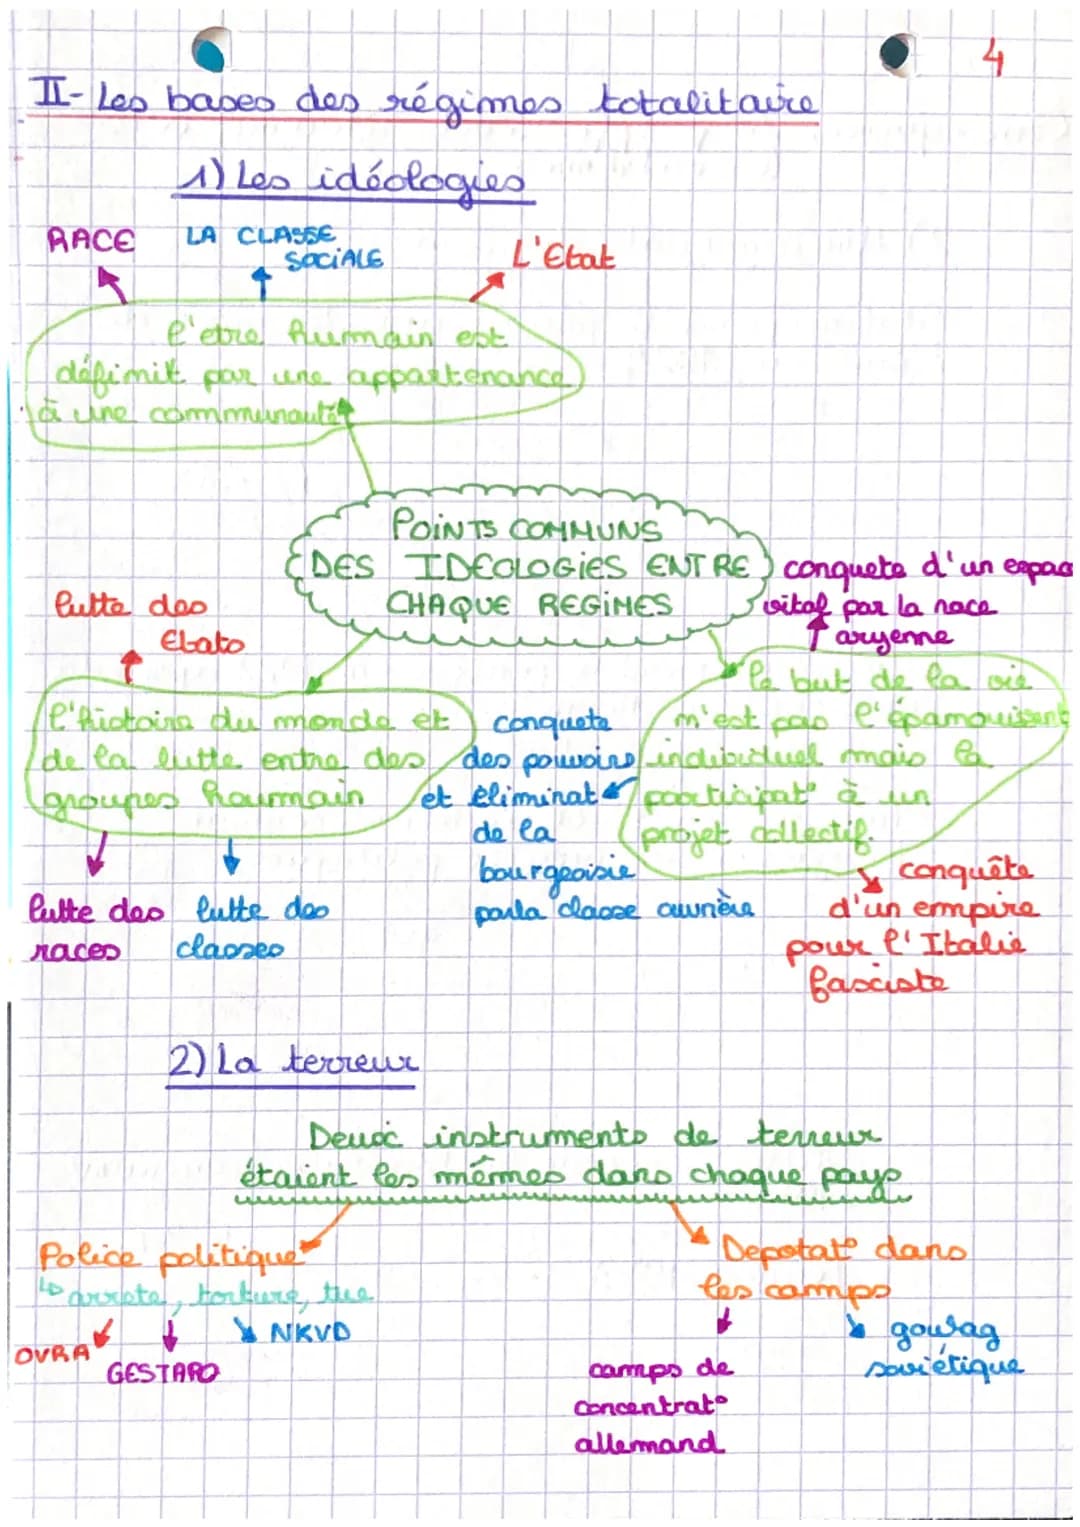 4
II- Les bases des régimes totalitaire
1) Les idéologies
RACE
LA CLASSE
SOCIALE
L'Etat
l'etre humain est
définit par une appartenance
à une communauté
POINTS COMMUNS
DES IDEOLOGIES ENTRE
CHAQUE REGIMES
conquete d'un espac
vital par la race
aryenne
lutte des
Etats
le but de la vie
n'est pas l'épanouissent
individuel mais la
participat° à un
projet collectif.
l'histoire du monde et
de la lutte entre des
groupes houmain
conquete
des pouvoirs
et éliminat°
de la
bourgeoisie
parla classe ouvrière
lutte des
races
lutte des
classes
conquête
d'un empire
pour l'Italie
fasciste
2) La terreur
Deux instruments de terreur
étaient les mêmes dans chaque pays
Police politique
↳ arrete, torture, tue
OVRA
GESTAPO
NKVD
Depotat° dans
les camps
camps de
concentrat°
allemand
goulag
soviétique